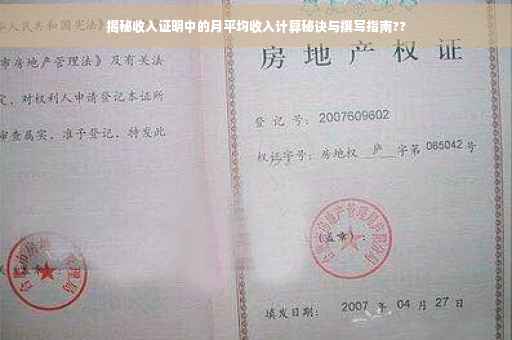 揭秘收入证明中的月平均收入计算秘诀与撰写指南??
人民共和国宪法》
市房地产管理法》及有关法
定，对权利人申请登记本证所
审查属实，准予登记，特发此
房地产权证
登记号：2007609602
权证字号：房地权 庐 字第 065042 号
(盖章)：
填发日期：2007 年 04 月 27 日